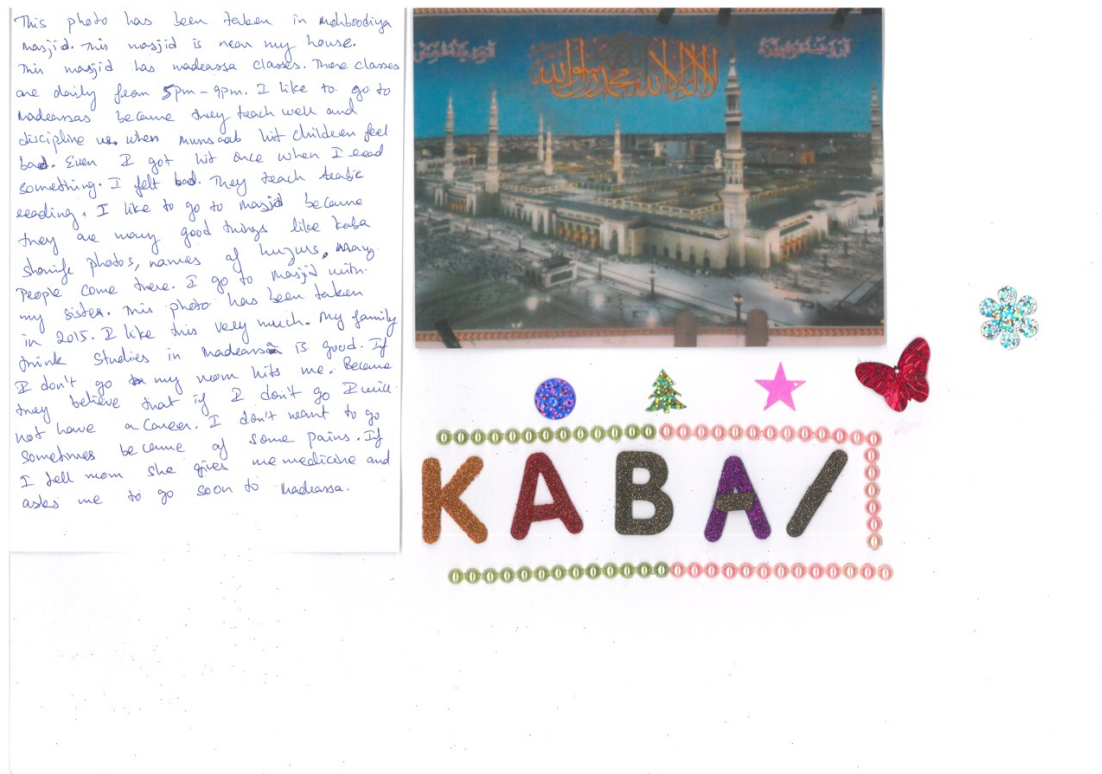 This photo has been taken in Mehboodiya
masjid. This masjid is near my house.
This masjid has madrassa classes. These classes
are daily from 5pm - 9pm. I like to go to
madrassas because they teach well and
discipline us, when munsaab hit children feel
bad. Even I got hit once when I read
something. I felt bad. They teach Arabic
reading. I like to go to masjid because
they are many good things like kaba
sharife photos, names of huzurs. Many
People come there. I go to masjid with
my sister. This photo has been taken
in 2015. I like this very much. My family
think studies in madrassa is good. If
I don't go my mom hits me. Because
they believe that if I don't go I will
not have a career. I don't want to go
sometimes because of some pains. If
I tell mom she gives me medicine and
asks me to go soon to madrassa.
لا اله الا الله محمد رسول الله
KABA/